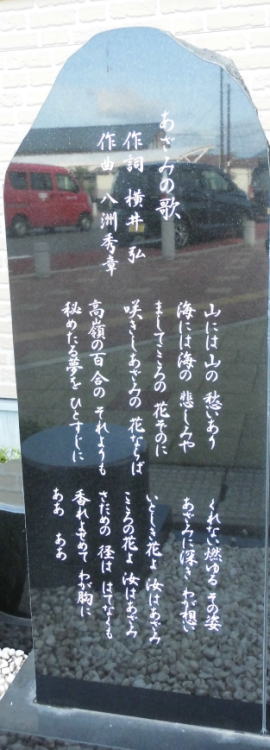 あざみの歌
作詞 横井 弘
作曲 八洲秀章
山には山の 愁いあり
海には海の 悲しみや
ましてこころの 花ぞのに
咲きしあざみの 花ならば
高嶺の百合の それよりも
秘めたる夢を ひとすじに
くれない燃ゆる その姿
あざみに深き わが想い
いとしき花よ 汝はあざみ
こころの花よ 汝はあざみ
さだめの 径は はてなくも
香れよせめて わが胸に
ああ ああ